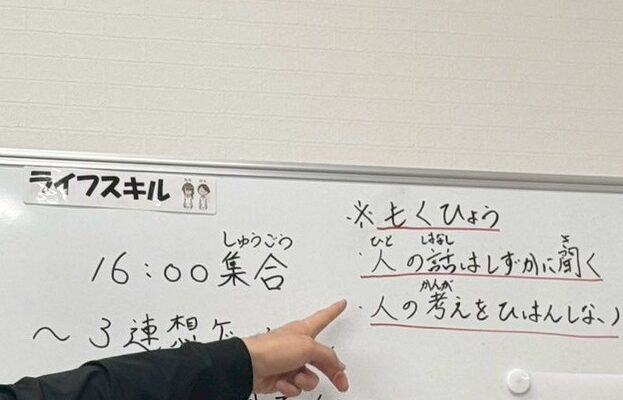 ライフスキル
しゅうごう
16:00 集合
～3連想ゲ
※もくひょう
ひと はなし き
・人の話はしずかに聞く
かんが
・人の考えをひはんしない